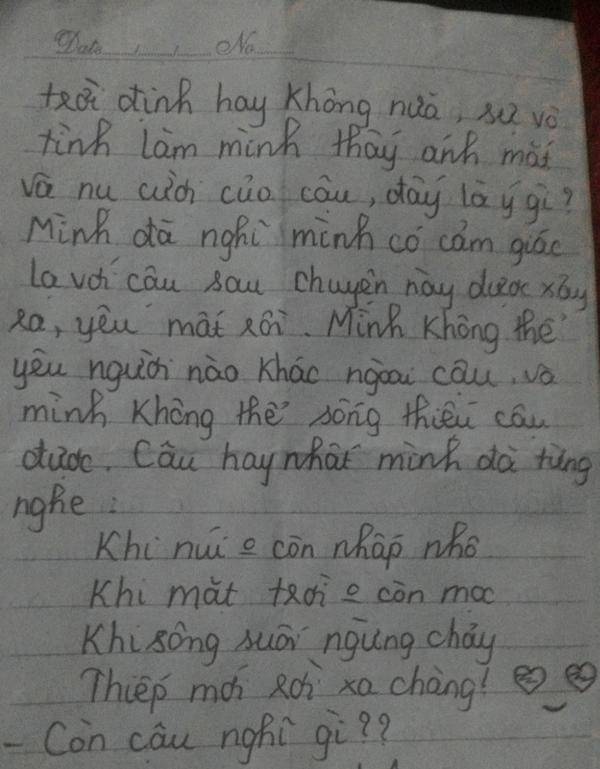 Date , , No
trời định hay không nữa, sự vô
tình làm mình thấy ánh mắt
và nụ cười của cậu, đấy là ý gì?
Mình đã nghĩ mình có cảm giác
lạ với cậu sau chuyện này được xảy
ra, yêu mất rồi. Mình không thể
yêu người nào khác ngoài cậu, và
mình không thể sống thiếu cậu
được. Câu hay nhất mình đã từng
nghe :
Khi núi o còn nhấp nhô
Khi mặt trời o còn mọc
Khi sông suối ngừng chảy
Thiếp mới rời xa chàng!
- Còn cậu nghĩ gì??